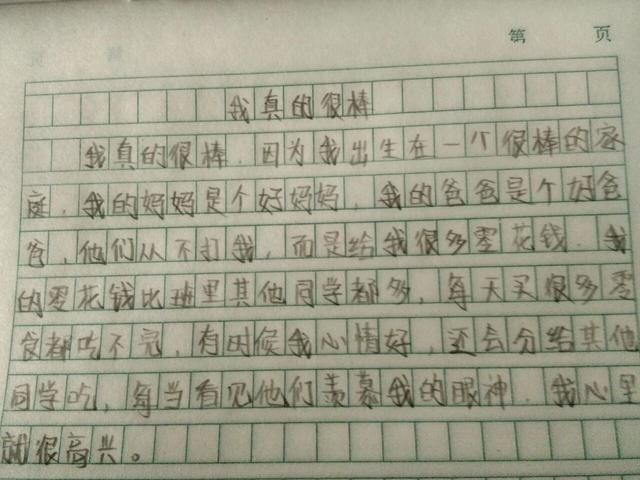 第 页
我真的很棒
我真的很棒，因为我出生在一个很棒的家
庭，我的妈妈是个好妈妈，我的爸爸是个好爸
爸，他们从不打我，而是给我很多零花钱，我
的零花钱比班里其他同学都多，每天买很多零
食都吃不完，有时候我心情好，还会分给其他
同学吃，每当看见他们羡慕我的眼神，我心里
就很高兴。